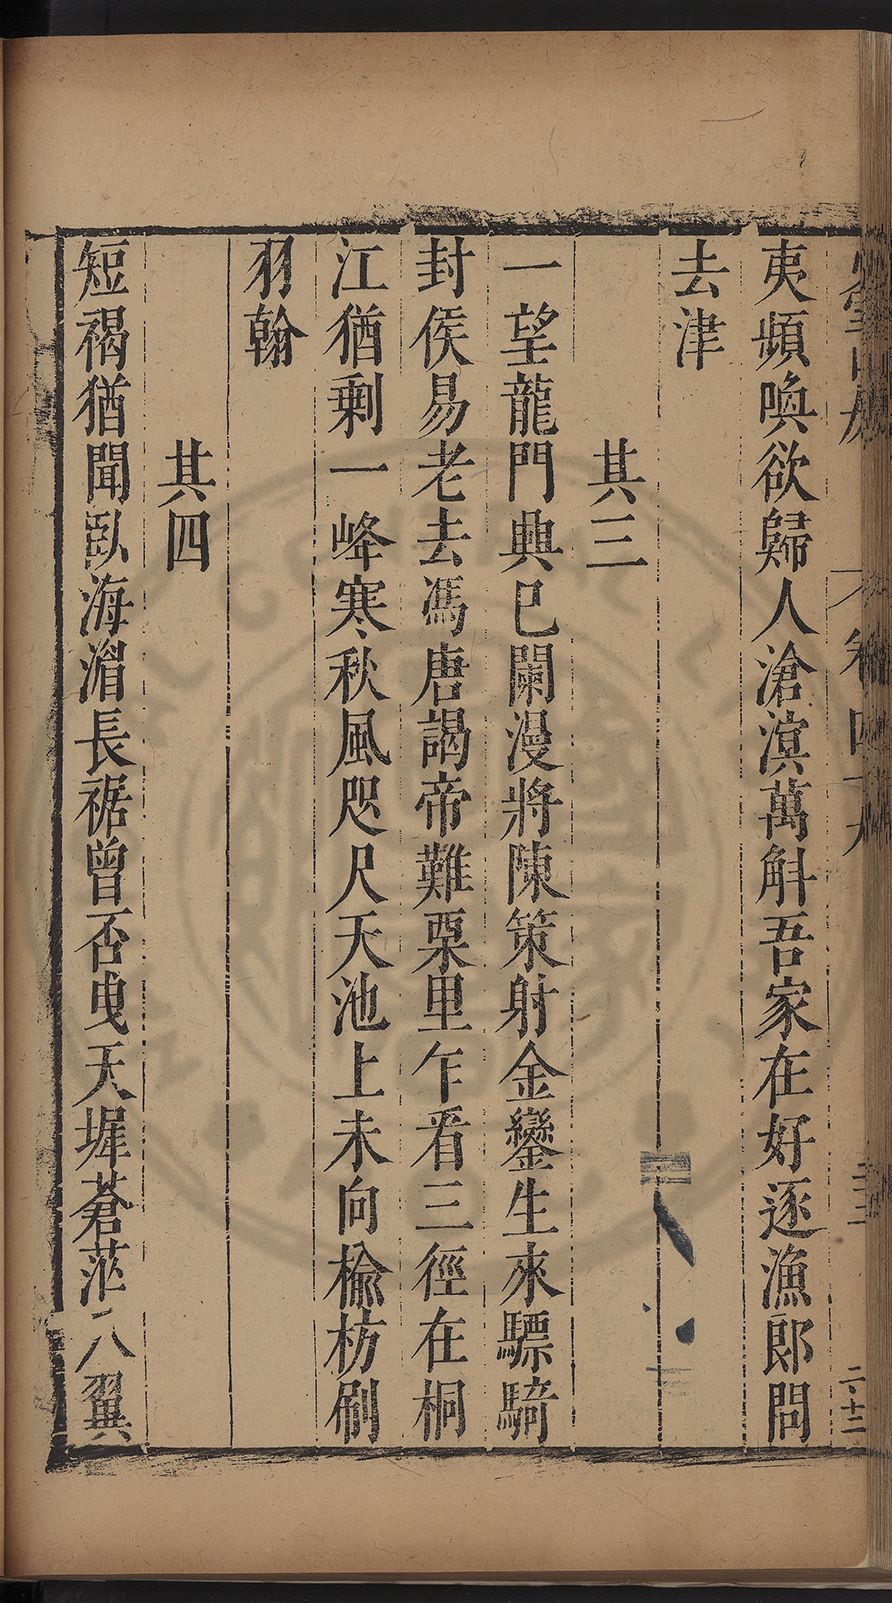 夷頻喚欲歸人滄溟萬斛吾家在好逐漁郎問
去津
其三
一望龍門興已闌漫將陳策射金鑾生來驃騎
封侯易老去馮唐謁帝難栗里乍看三徑在桐
江猶剩一峰寒秋風咫尺天池上未向榆枋刷
羽翰
其四
短褐猶聞臥海湄長裾曾否曳天墀蒼茫八翼